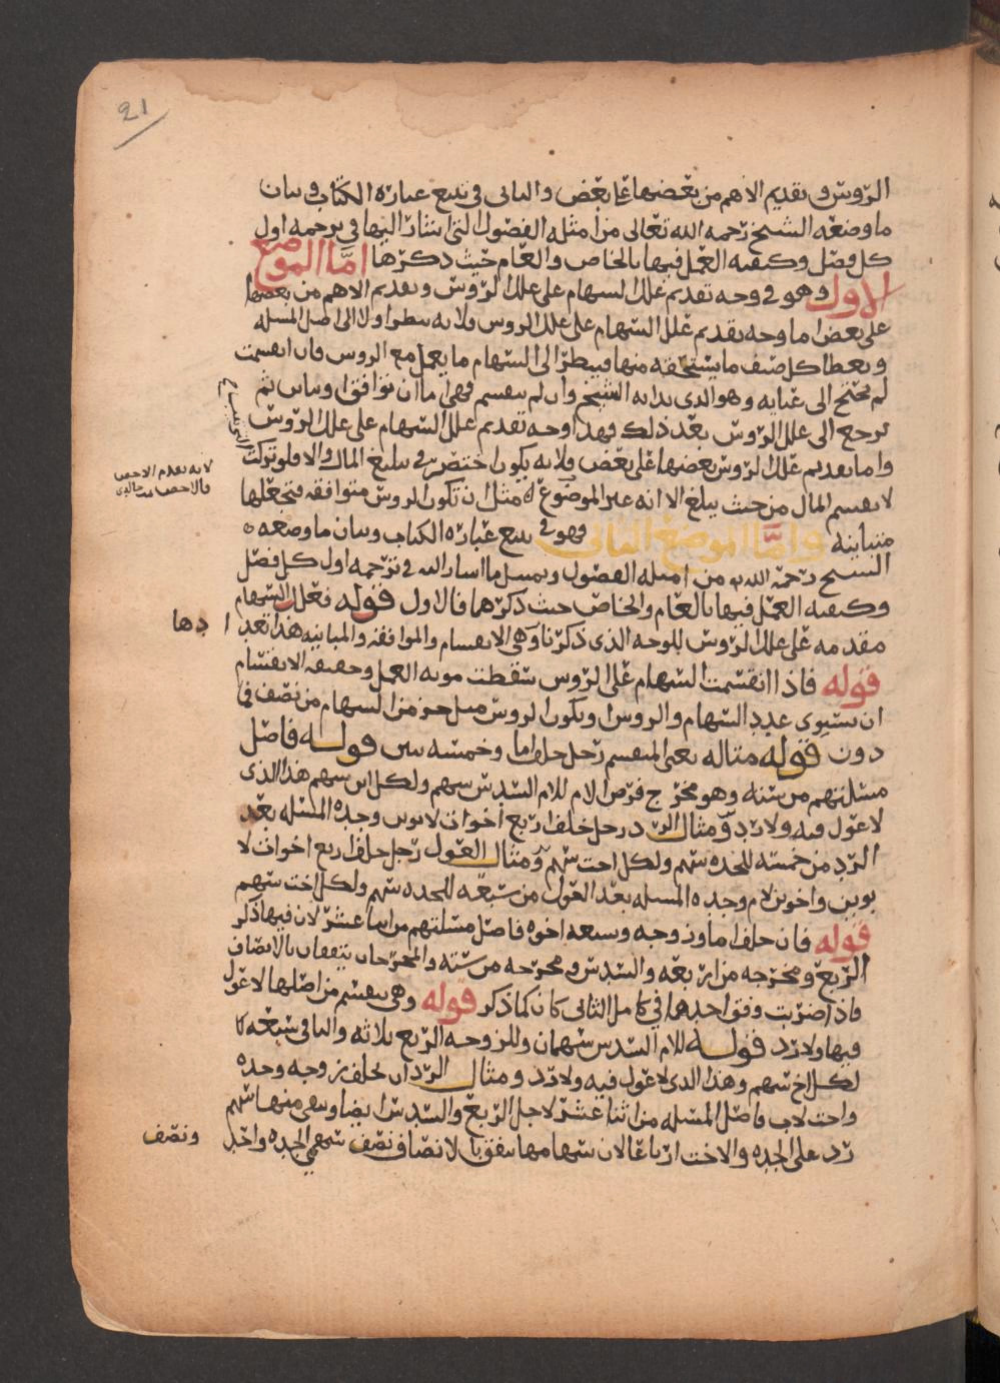 21
الرؤس وتقديم الاهم من بعضها على بعض والثاني في تتبع عبارة الكتاب وبيان
ما وضعه الشيخ رحمه الله تعالى من امثله الفصول التي اشار اليها في ترجمه اول
كل فصل وكيفيه العمل فيها بالخاص والعام حيث ذكرها اما الموضع
الاول وهو في وجه تقديم علل السهام على علل الرؤس وتقديم الاهم من بعضها
على بعض اما وجه تقديم علل السهام على علل الرؤس فلانه ينظر اولا الى اصل المسله
ويعطا كل صنف ما يستحقه منها فينظر الى السهام ما يعمل مع الروس فان انقسمت
لم يحتج الى غيابه وهو الذي بدا به الشيخ وان لم ينقسم فهي اما ان توافق او تباين ثم
نرجع الى علل الرؤس بعد ذلك فهذا وجه تقديم علل السهام على علل الرؤس
واما تقديم علل الرؤس بعضها على بعض فلانه يكون اختصر في تبليغ المال والا فلو تركت
لانه تقدم الاخص
فالاخص
لانقسم المال من حيث يبلغ الا انه غير الموضوع له مثل ان تكون الروس متوافقه فتجعلها
متباينه واما الموضع الثاني فهو في تتبع عبارة الكتاب وبيان ما وضعه
الشيخ رحمة الله من امثله الفصول وتمثيل ما اشار اليه في ترجمه اول كل فصل
وكيفيه العمل فيها بالعام والخاص حيث ذكرهما فالاول قوله فعلل السهام
مقدمه على علل الرؤس للوجه الذي ذكرنا وهي الانقسام والموافقه والمباينه هذا تعدا دها
قوله فاذا انقسمت السهام على الرؤس سقطت مونه العمل وحقيقه الانقسام
ان يستوي عدد السهام والروس او يكون الروس مثل جزء من السهام من نصف فما
دون قوله مثاله يعني المنقسم رجل خلف اما وخمسه بنين قوله فاصل
مسلتهم من سته وهو مخرج فرض الام للام السدس سهم ولكل ابن سهم هذا الذي
لا عول فيه ولا رد ومثال الرد رجل خلف اربع اخوات لابوين وجده المسله بعد
الرد من خمسه للجده سهم ولكل اخت سهم ومثال العول رجل خلف اربع اخوات لا
بوين واخوين لام وجده المسله بعد العول من سبعه للجده سهم ولكل اخت سهم
قوله فان خلف اما وزوجه وسبعه اخوه فاصل مسلتهم من اثنا عشر لان فيها ذكر
الربع ومخرجه من اربعه والسدس ومخرجه من سته والمخرجان يتفقان بالانصاف
فاذا ضربت وفق احدهما في كامل الثاني كان كما ذكر قوله وهي تنقسم من اصلها لا عول
فيها ولا رد قوله للام السدس سهمان وللزوجه الربع ثلاثه والباقي سبعه
لكل اخ سهم وهذا الذي لا عول فيه ولا رد ومثال الرد ان يخلف زوجه وجده
واخت لاب فاصل المسله من اثنا عشر لاجل الربع والسدس ايضا ويبقى منها سهم
رد على الجده والاخت ارباعا لان سهامهما يتفق بالانصاف نصف سهمي الجده واحد
ونصف